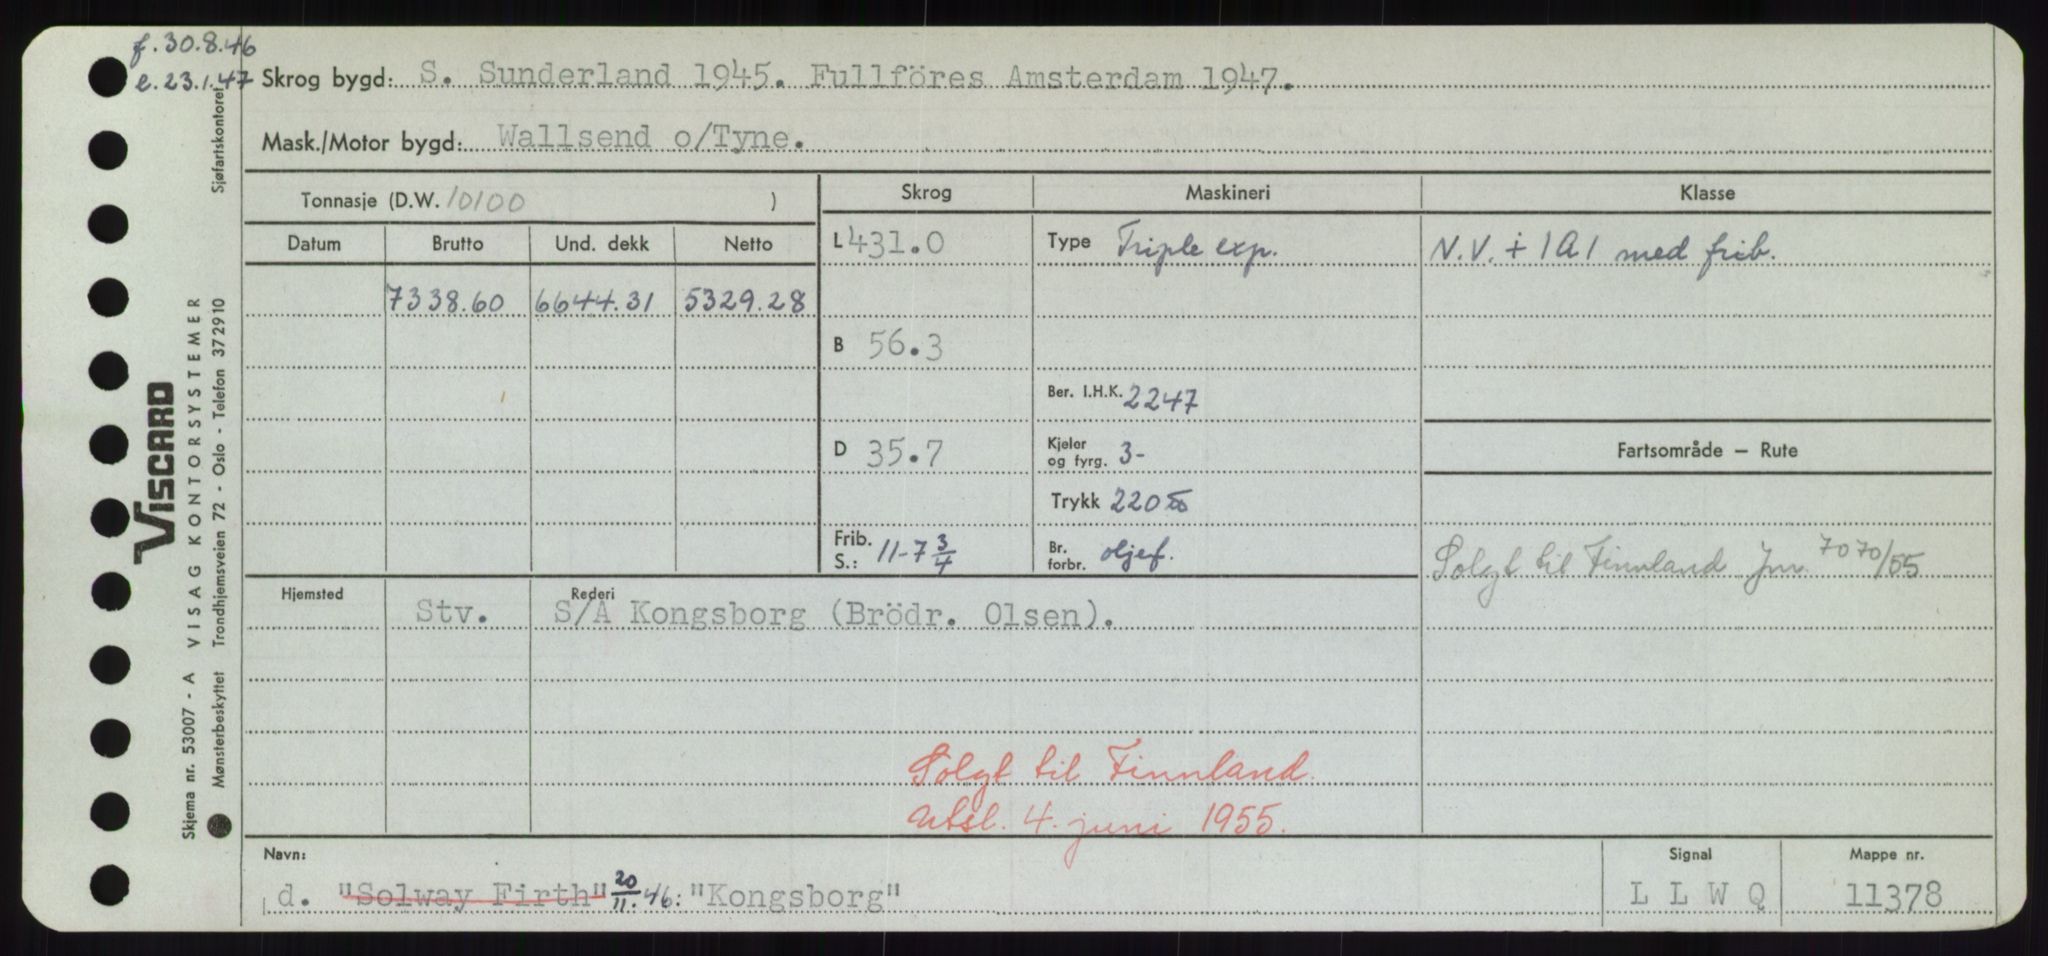 f. 30.8.46
e. 23.1.47
Skrog bygd: S. Sunderland 1945. Fullföres Amsterdam 1947.
Mask./Motor bygd: Wallsend o/Tyne.
Tonnasje (D.W. 10100 )
Skrog Maskineri Klasse
Datum Brutto Und. dekk Netto
L 431.0 Type Triple exp. N.V. + 1A1 med frib.
7338.60 6644.31 5329.28
B 56.3
Ber. I.H.K. 2247
D 35.7 Kjeler og fyrg. 3- Fartsområde – Rute
Trykk 220
Frib. S.: 11-7 3/4 Br. forbr. oljef.
Solgt til Finnland Jnr. 7070/55
Hjemsted Rederi
Stv. S/A Kongsborg (Brödr. Olsen).
Solgt til Finnland.
Utsl. 4. juni 1955.
Navn: Signal Mappe nr.
d. "Solway Firth" 20/11.46: "Kongsborg" L L W Q 11378
Skjema nr. 53007 - A VISAG KONTORSYSTEMER
Mønsterbeskyttet Trondhjemsveien 72 - Oslo - Telefon 372910 Sjøfartskontoret
VISCARD